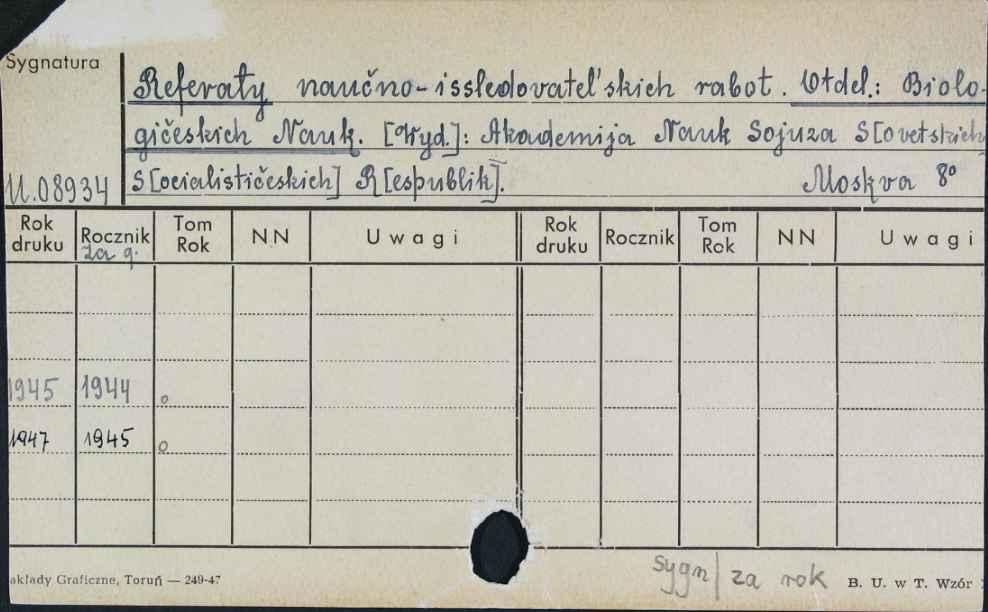 Sygnatura
Referaty naučno-issledovatel'skich rabot. Otdel.: Biolo-
gičeskich Nauk. [Wyd.]: Akademija Nauk Sojuza S[ovetskich]
U.08934 S[ocialističeskich] R[espublik]. Moskva 8º
Rok druku Rocznik Tom Rok NN Uwagi Rok druku Rocznik Tom Rok NN Uwagi
za q.
1945 1944 o
1947 1945 o
sygn/ za rok
akłady Graficzne, Toruń — 249-47 B. U. w T. Wzór